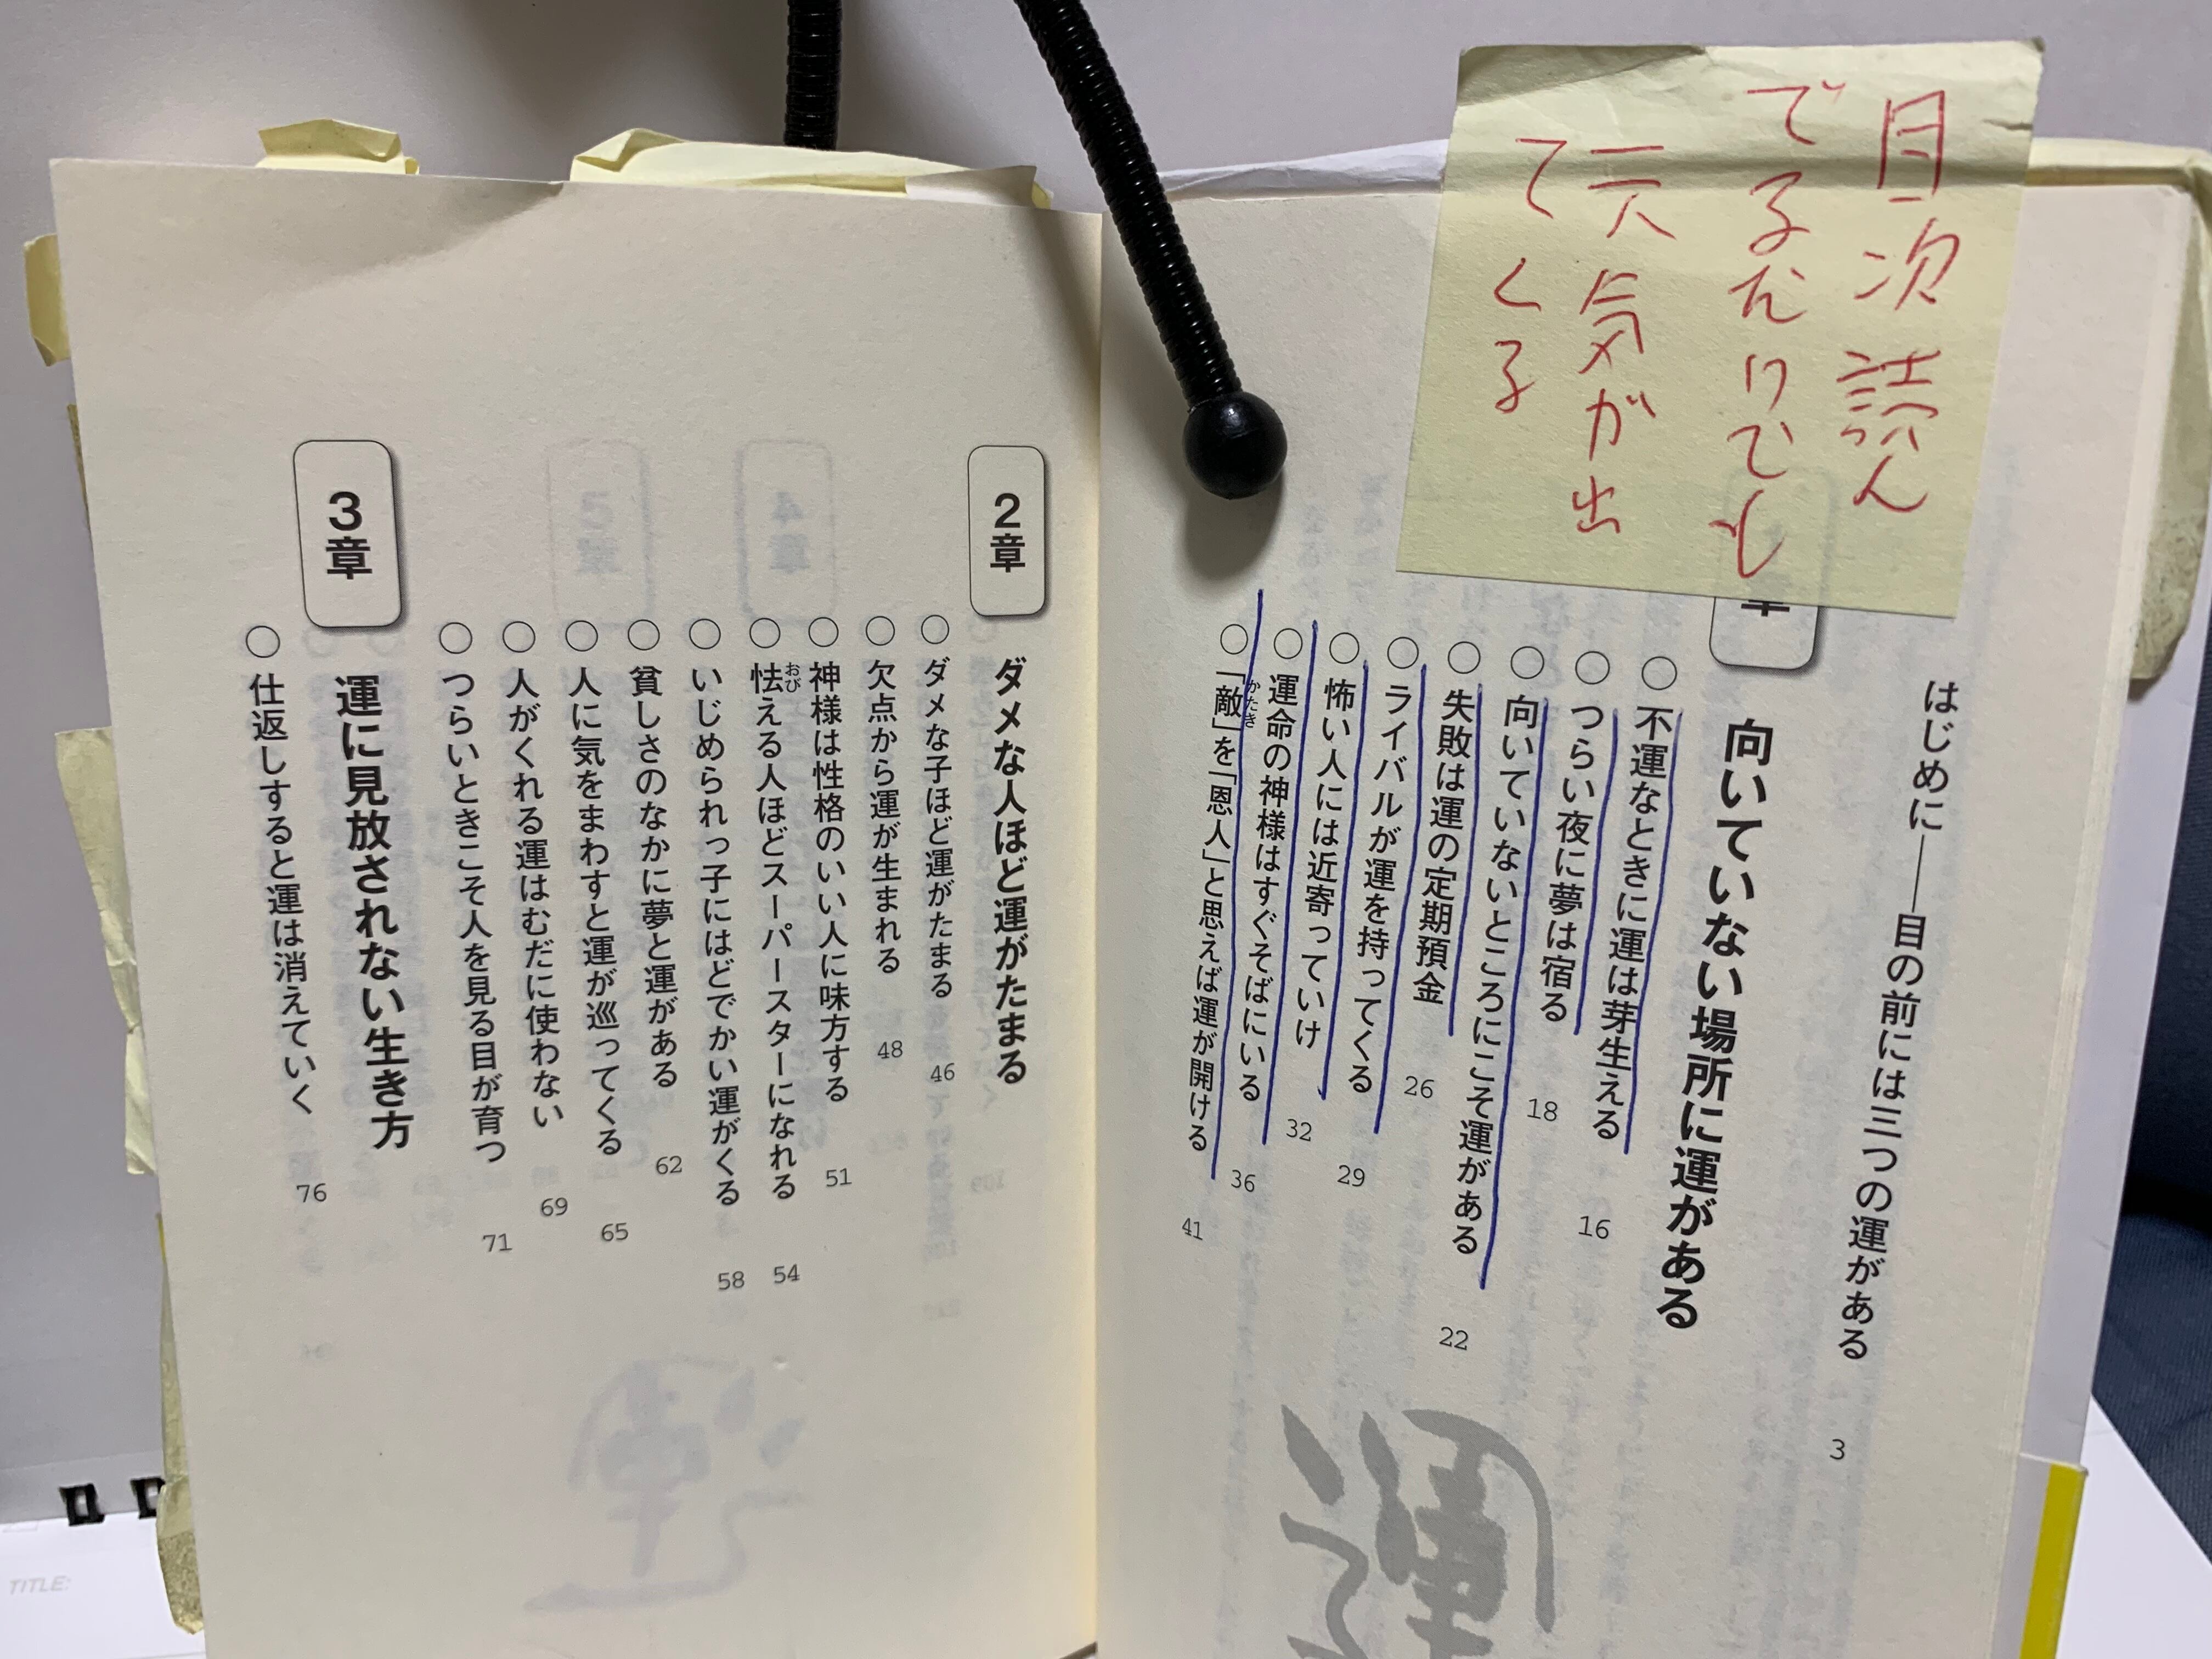 目次読ん
でるだけでも
元気が出
てくる
はじめに――目の前には三つの運がある 3
章
向いていない場所に運がある
○不運なときに運は芽生える 16
○つらい夜に夢は宿る 18
○向いていないところにこそ運がある 22
○失敗は運の定期預金 26
○ライバルが運を持ってくる 29
○怖い人には近寄っていけ 32
○運命の神様はすぐそばにいる 36
○「敵」を「恩人」と思えば運が開ける 41
かたき
2章
ダメな人ほど運がたまる
○ダメな子ほど運がたまる 46
○欠点から運が生まれる 48
○神様は性格のいい人に味方する 51
○怯える人ほどスーパースターになれる 54
おび
○いじめられっ子にはどでかい運がくる 58
○貧しさのなかに夢と運がある 62
○人に気をまわすと運が巡ってくる 65
○人がくれる運はむだに使わない 69
○つらいときこそ人を見る目が育つ 71
3章
運に見放されない生き方
○仕返しすると運は消えていく 76
運
TITLE: